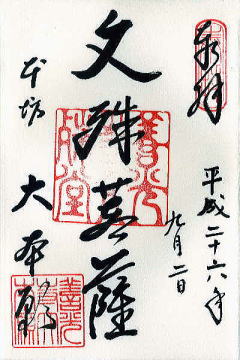 奉拝
平成二十六年
九月二日
文殊菩薩
本坊
大本願